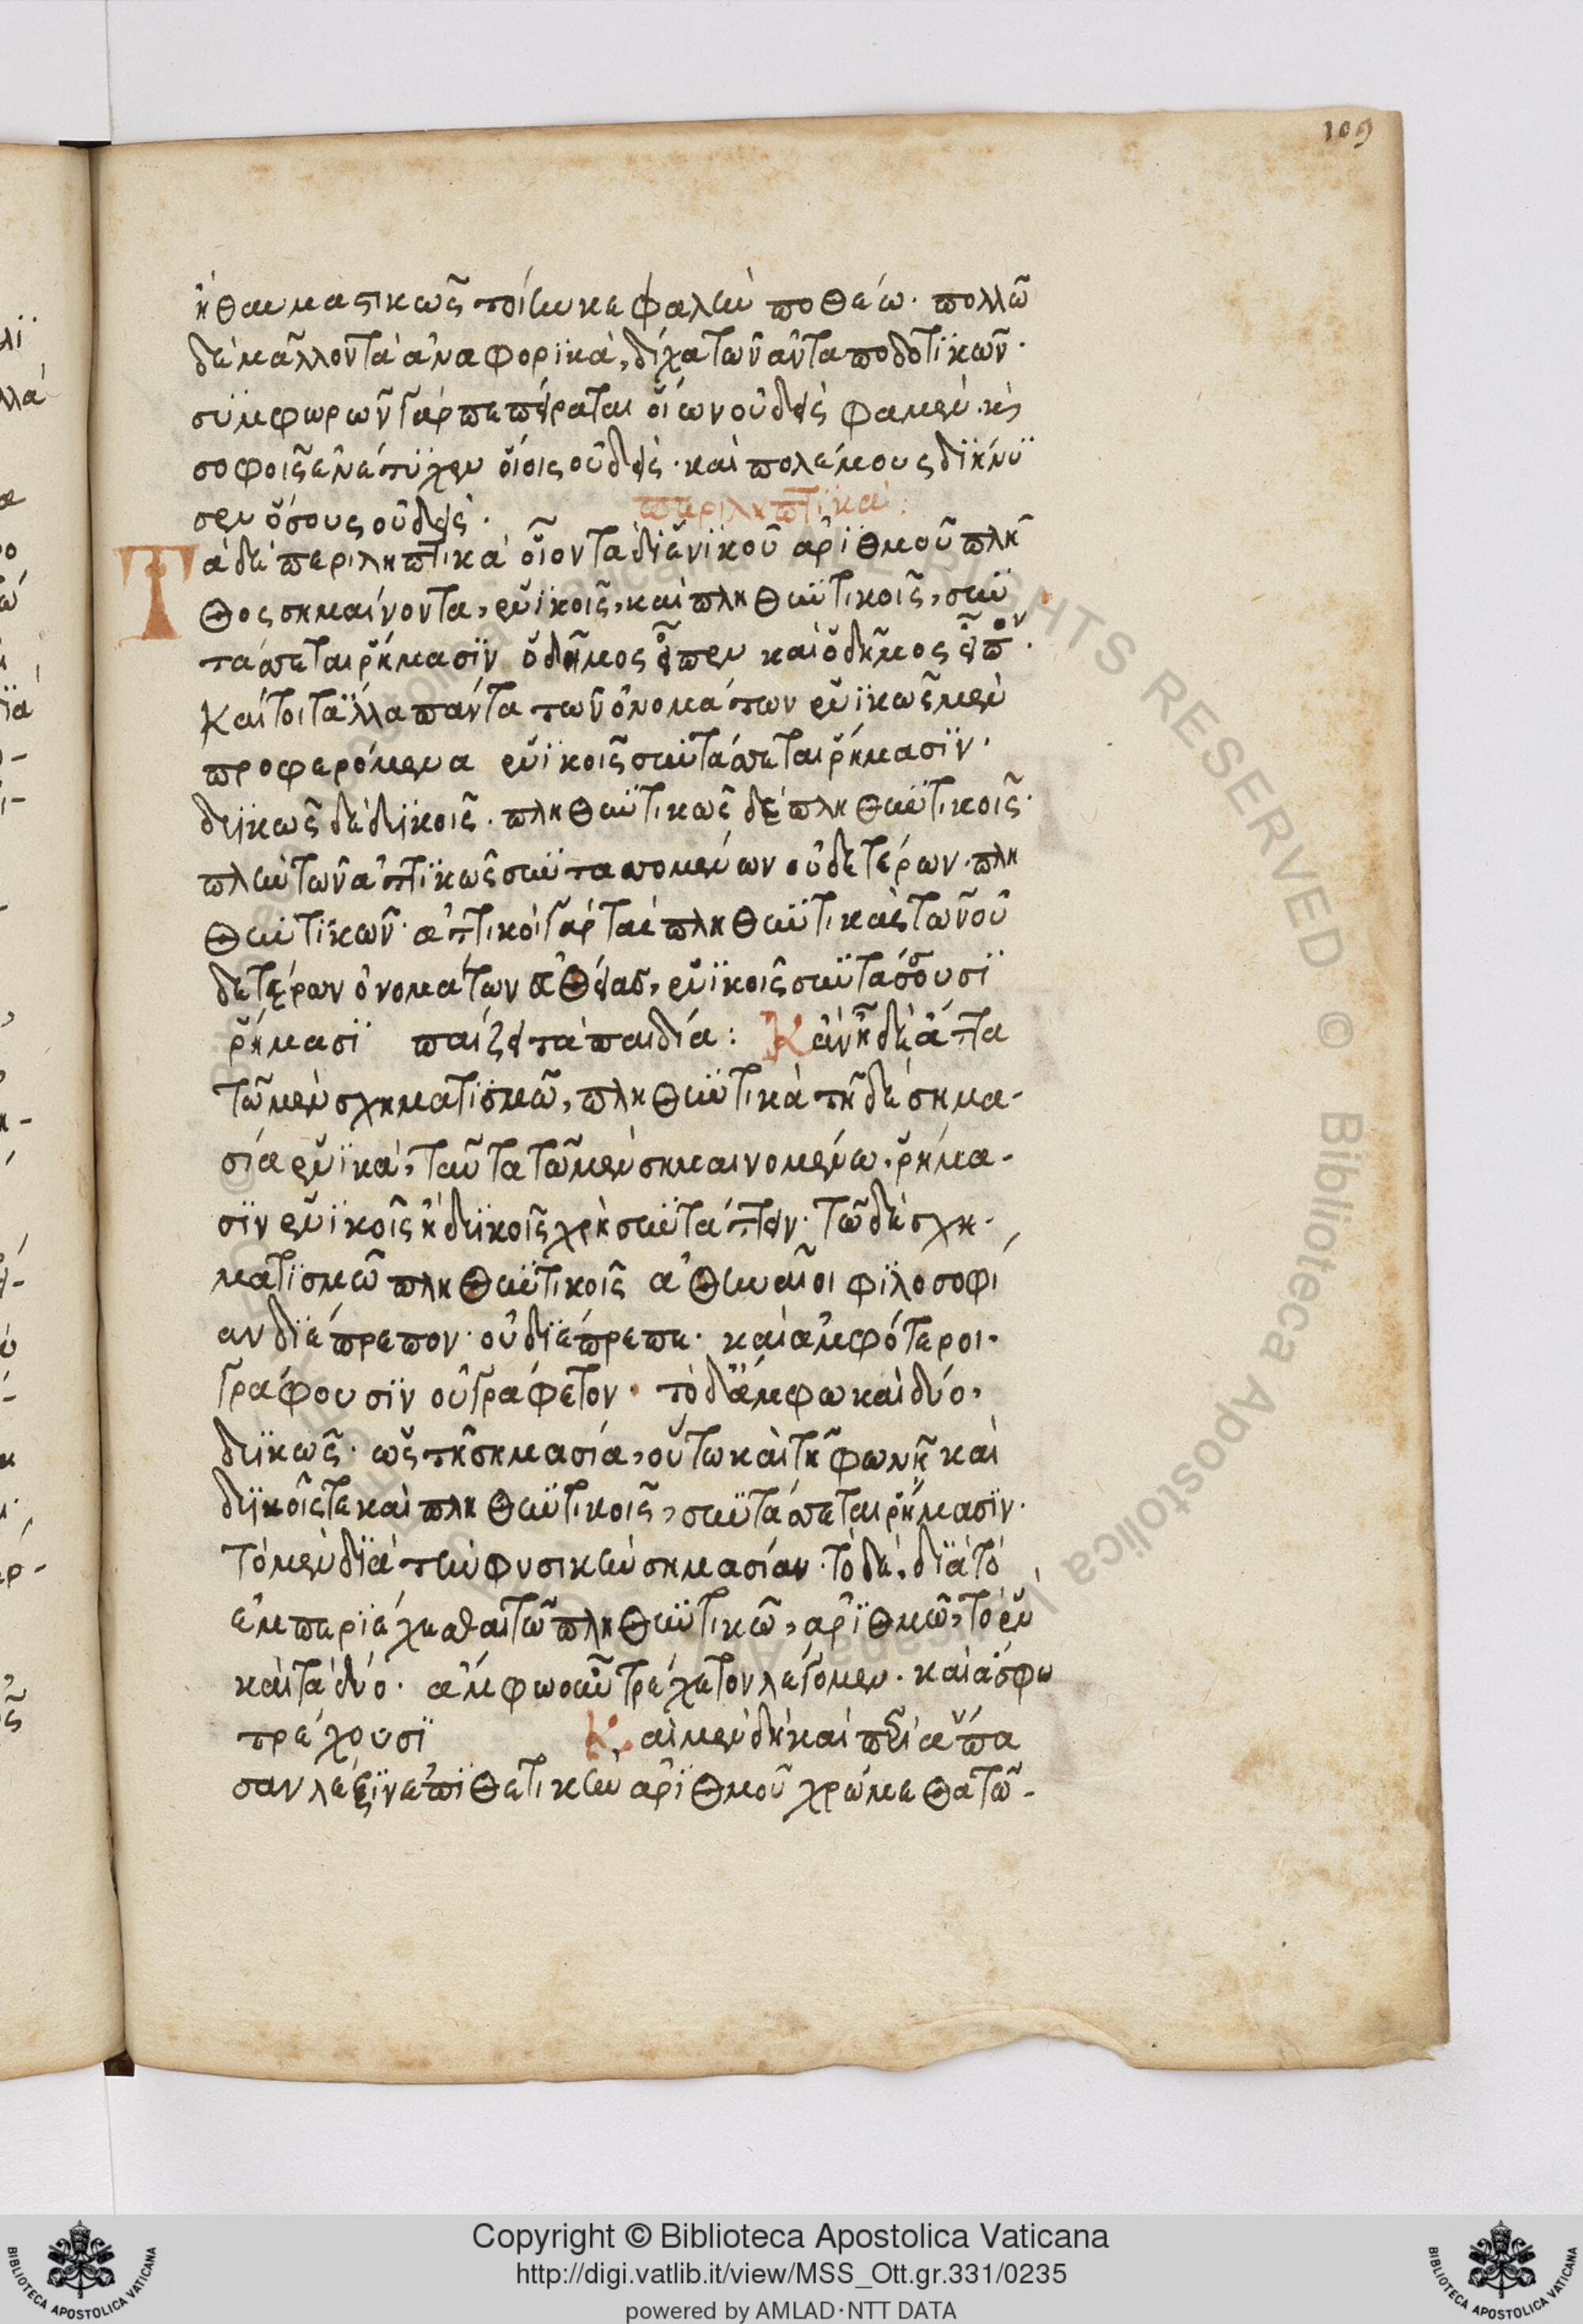 109
ἢ θαυμαστικῶς τοίην κεφαλὴν ποθέω. πολλῶ
δὲ μᾶλλον τὰ ἀναφορϊκὰ, δίχα τῶν ἀνταποδοτικῶν.
συμφωρῶν γὰρ πεπείραται οἵων οὐδεὶς φαμεν. καὶ
σοφοῖς ἐνέτυχεν οἵοις οὐδεὶς. καὶ πολέμους διήνϋ
σεν ὅσους οὐδεὶς.
περιληπτϊκὰ:
Τὰ δὲ περιληπτικὰ οἷον τὰ δϊ ἑνϊκοῦ ἀρϊθμοῦ πλῆ
θος σημαίνοντα, ἑνϊκοῖς, καὶ πληθυντικοῖς, συν
τάττεται ῥήμασϊν ὁ δῆμος εἶπεν καὶ ὁ δῆμος εἶπον.
Καίτοι τἄλλα πάντα τῶν ὀνομάτων ἑνϊκῶς μὲν
προφερόμενα ἑνϊκοῖς συντάττεται ῥήμασϊν.
δυϊκῶς δὲ δυϊκοῖς. πληθυντικῶς δὲ πληθυντικοῖς.
πλὴν τῶν ἀττϊκῶς συνταττομένων οὐδετέρων. πλη
θυντικῶν. ἀττικοὶ γὰρ τὰς πληθυντικὰς τῶν οὐ
δετέρων ὀνομάτων εὐθείας, ἑνϊκοῖς συντάσσουσϊ
ῥήμασϊ παίζει τὰ παιδία: Κἂν ᾖ δὲ ἄττα
τῶ μὲν σχηματϊσμῶ, πληθυντικὰ τῇ δὲ σημα-
σία ἑνϊκὰ, ταῦτα τῶ μὲν σημαινομένω. ῥήμα-
σϊν ἑνϊκοῖς ἢ δυϊκοῖς χρὴ συντάττειν. τῶ δὲ σχη-
ματϊσμῶ πληθυντικοῖς ἀθηναῖοι φϊλοσοφί
αν δϊέπρεπον. οὐ δϊέπρεπε. καὶ ἀμφότεροι.
γράφουσϊν οὐ γράφετον. τὸ δ' ἄμφω καὶ δύο,
δυϊκῶς. ὡς τῇ σημασία, οὕτω καὶ τῇ φωνῇ καὶ
δυϊκοῖς τε καὶ πληθυντικοῖς, συντάττεται ῥήμασϊν.
τὸ μὲν δϊὰ τὴν φυσικὴν σημασίαν. τὸ δὲ, δϊὰ τὸ
ἐμπερϊέχεσθαι τῶ πληθυντικῶ, ἀρϊθμῶ, τὸ ἓν
καὶ τὰ δύο. ἄμφω οὖν τρέχετον λέγομεν. καὶ ἄμφω
τρέχουσϊ Καὶ μὲν δὴ καὶ παρὰ ἅπα
σαν λέξϊν ἐπϊθετικὴν ἀρϊθμοῦ χρώμεθα τῶ-
Copyright © Biblioteca Apostolica Vaticana
http://digi.vatlib.it/view/MSS_Ott.gr.331/0235
powered by AMLAD·NTT DATA
BIBLIOTECA APOSTOLICA VATICANA
BIBLIOTECA APOSTOLICA VATICANA